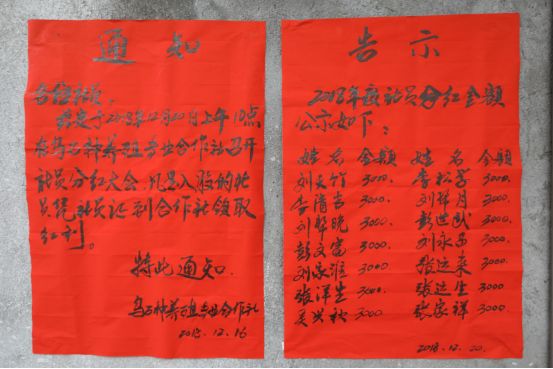 通知
各位社员:
兹定于2018年12月20日上午10点
在乌石种养殖专业合作社召开
社员分红大会,凡是入股的社
员凭社员证到合作社领取
红利。
特此通知.
乌石种养殖专业合作社
2018.12.16
告示
2018年度社员分红金额
公示如下:
姓名 金额 姓名 金额
刘文竹 3000. 李松学 3000.
李清吉 3000. 刘群月 3000.
刘群晚 3000. 彭世财 3000.
彭文富 3000. 刘永吊 3000.
刘泉淮 3000 张运来 3000.
张泽生 3000. 张运生 3000
吴兴秋 3000 张家祥 3000.
2018.12.20.